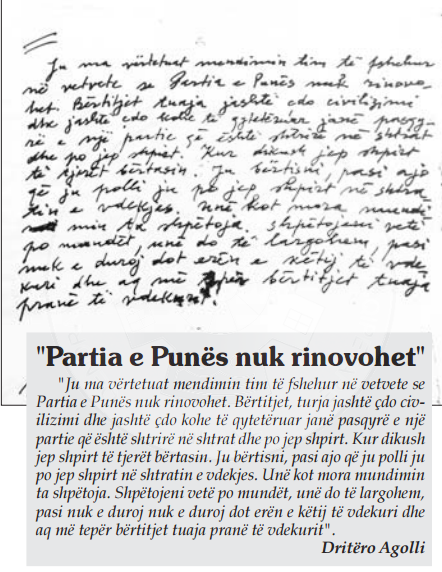 Ju ma vërtetuat mendimin tim të fshehur
në vetvete se Partia e Punës nuk rinovo-
het. Bërtitjet tuaja jashtë çdo civilizimi
dhe jashtë çdo kohe të qytetëruar janë pasqy-
rë e një partie që është shtrirë në shtrat
dhe po jep shpirt. Kur dikush jep shpirt
të tjerët bërtasin. Ju bërtisni, pasi ajo
që ju polli ju po jep shpirt në shtra-
tin e vdekjes. Unë kot mora mundi-
min ta shpëtoja. Shpëtojeni vetë
po mundët, unë do të largohem, pasi
nuk e duroj dot erën e këtij të vde-
kuri dhe aq më tepër bërtitjet tuaja
pranë të vdekurit.
"Partia e Punës nuk rinovohet"
"Ju ma vërtetuat mendimin tim të fshehur në vetvete se
Partia e Punës nuk rinovohet. Bërtitjet, turja jashtë çdo civ-
ilizimi dhe jashtë çdo kohe të qytetëruar janë pasqyrë e një
partie që është shtrirë në shtrat dhe po jep shpirt. Kur dikush
jep shpirt të tjerët bërtasin. Ju bërtisni, pasi ajo që ju polli ju
po jep shpirt në shtratin e vdekjes. Unë kot mora mundimin
ta shpëtoja. Shpëtojeni vetë po mundët, unë do të largohem,
pasi nuk e duroj nuk e duroj dot erën e këtij të vdekuri dhe
aq më tepër bërtitjet tuaja pranë të vdekurit".
Dritëro Agolli